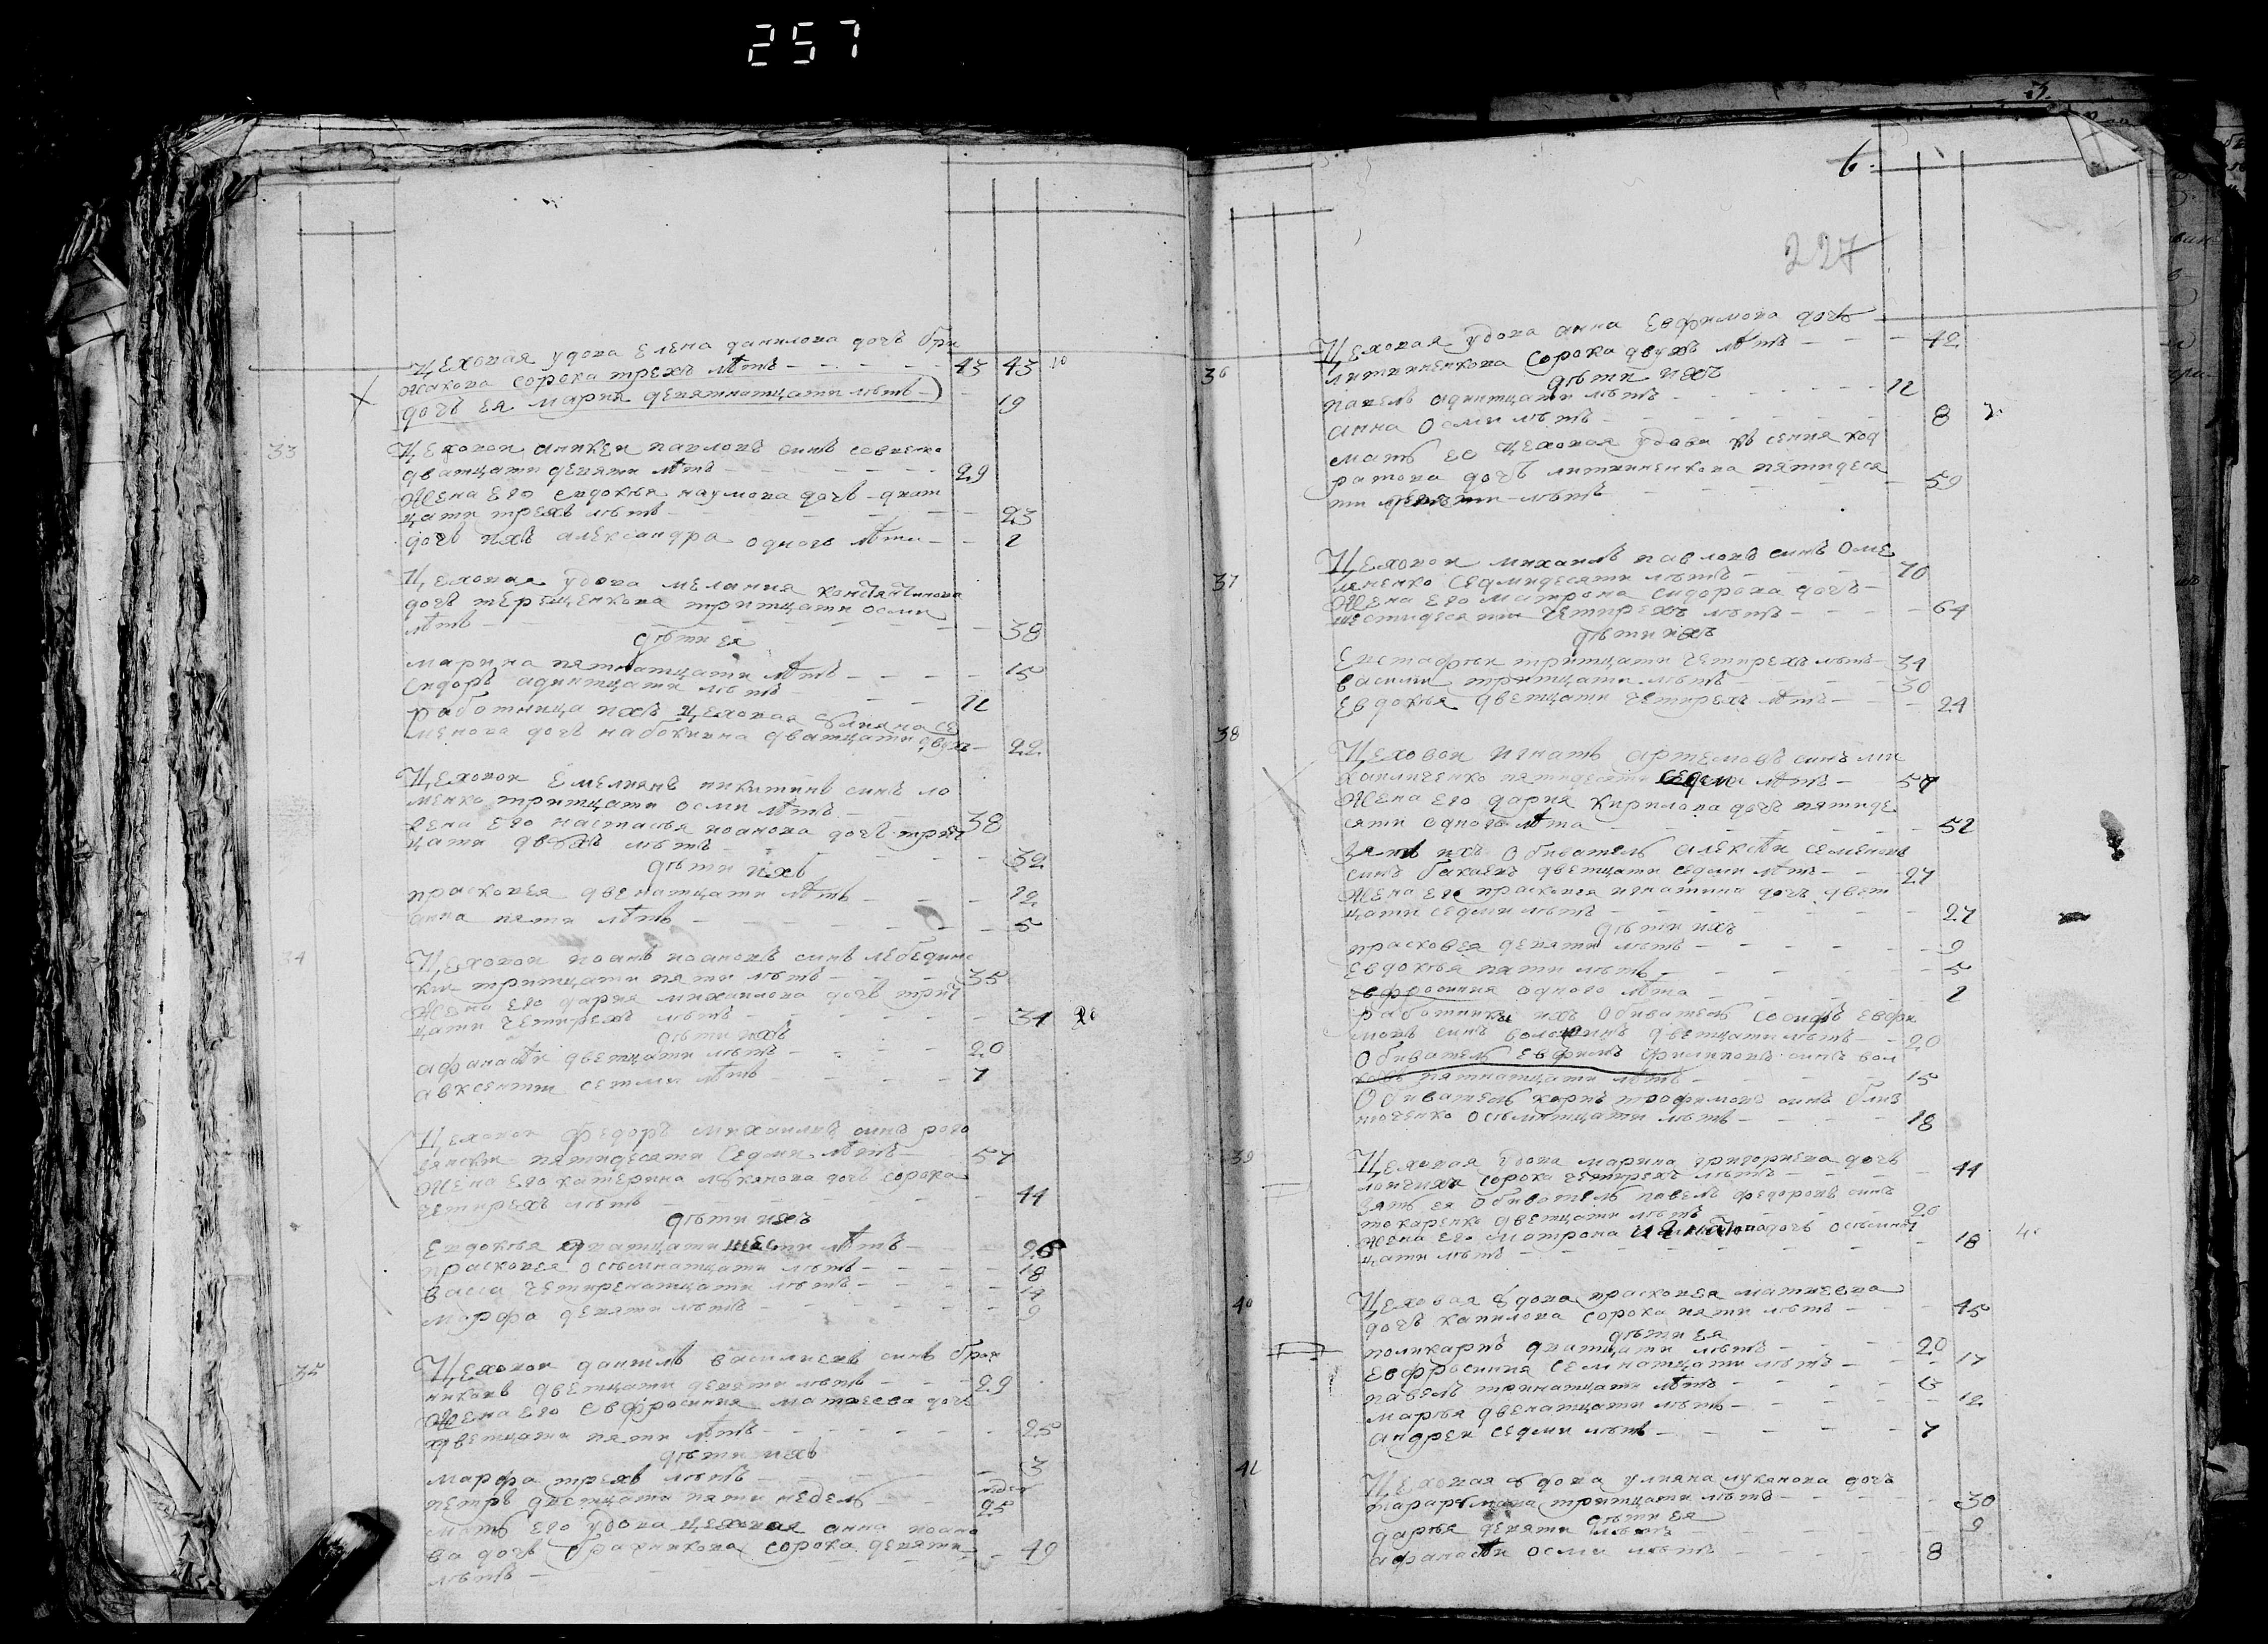 257
Цеховая удова Елена данилова дочъ бри
жакова сорока трехъ лѣтъ 43 43 10
дочъ ея мария девятнатцати лѣтъ 19
33 Цеховои аникеи павловъ синъ савченко
дватцати девяти лѣтъ 29
Жена Его евдокѣя наумова дочъ дват
цати трехъ лѣтъ 23
дочъ ихъ александра одного лѣта 1
Цеховая удова мелания константинова
дочъ терещенкова тритцати осми
лѣтъ 38
дѣти ея
марина пятнатцати лѣтъ 15
сидоръ адинтцати лѣтъ 11
работница ихъ цеховая улияна се
менова дочъ набокина дватцати двухъ 22
Цеховои Емелиянъ никитинъ синъ ло
менко тритцати осми лѣтъ 38
Жена Его настасья иоанова дочъ трит
цати двухъ лѣтъ 32
дѣти ихъ
прасковея двенатцати лѣтъ 12
анна пяти лѣтъ 5
34 Цеховои иоанъ иоановъ синъ лебединс
кии тритцати пяти лѣтъ 35
Жена Его дария михаилова дочъ трит
цати четирехъ лѣтъ 34
дѣти ихъ
афанасѣи дветцати лѣтъ 20
авксентии сетми лѣтъ 7
Цеховои федоръ михаиловъ синъ рого
вянски пятидесяти седми лѣтъ 57
Жена Его катерина лукянова дочъ сорока
четирехъ лѣтъ 44
дѣти ихъ
Евдокѣя дватцати шести лѣтъ 26
прасковея осьмнатцати лѣтъ 18
васса четиренатцати лѣтъ 14
марфа девяти лѣтъ 9
35 Цеховои даниилъ василиевъ синъ бран
никовъ дветцати девяти лѣтъ 29
Жена Его Евфросиния матвеева дочъ
дветцати пяти лѣтъ 25
дѣти ихъ
марфа трехъ лѣтъ 3
петръ дветцати пяти недель недел 25
мать Его удова цеховая анна иоано
ва дочъ бранникова сорока девяти 49
лѣтъ
6
227
36 Цеховая удова анна Евфимова дочъ
литвиненкова сорока двухъ лѣтъ 42
дѣти ихъ
павелъ адинтцати лѣтъ 11
анна осми лѣтъ 8
мать ео цеховая удова ксения код
ратова дочъ литвиненкова пятидеся
ти девяти лѣтъ 59
37 Цеховои михаилъ павловъ синъ оме
ляненко седмидесяти лѣтъ 70
Жена Его матрона сидорова дочъ
шестидесяти четирехъ лѣтъ 64
дѣти ихъ
Евстафѣи тритцати четирехъ лѣтъ 34
василии тритцати лѣтъ 30
Евдокѣя дветцати четирехъ лѣтъ 24
38 Цеховои игнатъ артемовъ синъ ми
хаиличенко пятидесяти седми лѣтъ 57
Жена Его дария кирилова дочъ пятиде
сяти одного лѣта 51
зять ихъ обиватель алексѣи семеновъ
синъ бакаевъ дветцати седми лѣтъ 27
Жена Его прасковея игнатина дочъ двет
цати седми лѣтъ 27
дѣти ихъ
прасковея девяти лѣтъ 9
Евдокѣя пяти лѣтъ 5
Евфросиния одного лѣта 1
работники ихъ обиватель иосифъ евфи
мовъ синъ дветцати лѣтъ 20
Обиватель Евфимъ филиповъ синъ вол
ковъ пятнатцати лѣтъ 15
Обиватель карпъ трофимовъ синъ близ
нюченко осьмнатцати лѣтъ 18
39 Цеховая удова марина григориева дочъ
сорока четирехъ лѣтъ 44
зять ея обиватель павелъ федоровъ синъ
токаренко дветцати лѣтъ 20
Жена Его матрона дочъ осьмнат
цати лѣтъ 18
40 Цеховая удова прасковея матвеева
дочъ капилова сорока пяти лѣтъ 45
дѣти ея
поликарпъ дватцати лѣтъ 20
Евфросиния семнатцати лѣтъ 17
павелъ тринатцати лѣтъ 13
марѣя двенатцати лѣтъ 12
андреи седми лѣтъ 7
41 Цеховая удова улияна лукянова дочъ
тарарикова тритцати лѣтъ 30
дѣти ея
дарѣя девяти лѣтъ 9
афанасѣи осми лѣтъ 8